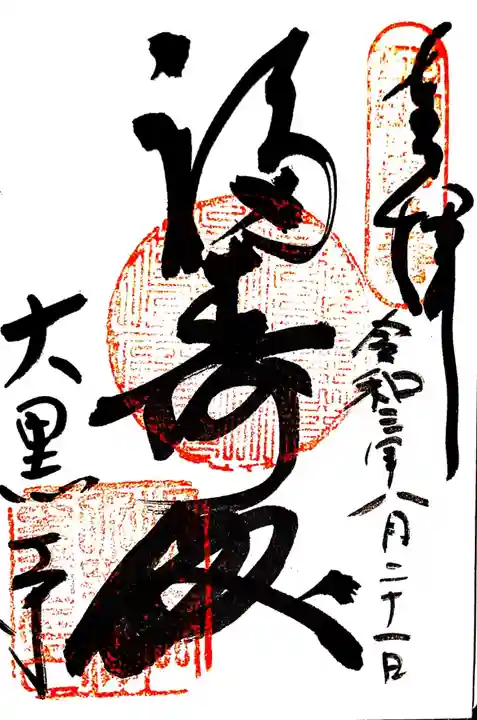 奉拝
令和三年八月二十一日
福寿殿
大黒寺